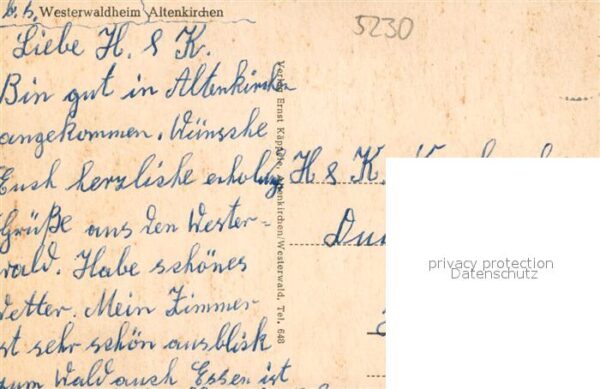 Westerwaldheim Altenkirchen
5230
Liebe H. & K.
Bin gut in Altenkirchen
angekommen. Wünsche
Euch herzliche
Grüße aus den Wester-
wald. Habe schönes
Wetter. Mein Zimmer
ist sehr schön ausblick
zum Wald auch Essen ist
Verlag Ernst Käppele, Altenkirchen/Westerwald, Tel. 648
H & K.
privacy protection
Datenschutz